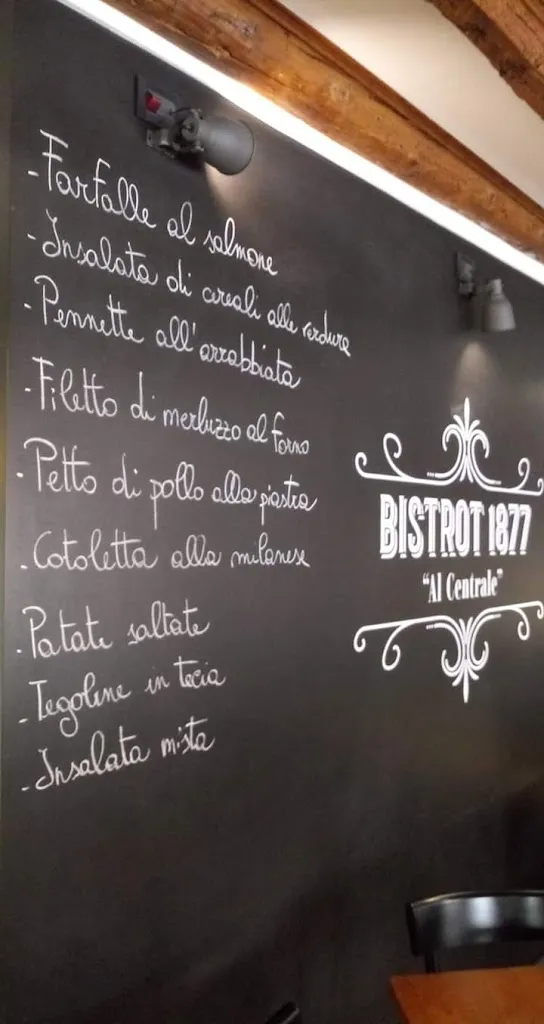 - Farfalle al salmone
- Insalata di cereali alle verdure
- Pennette all'arrabbiata
- Filetto di merluzzo al forno
- Petto di pollo alla piastra
- Cotoletta alla milanese
- Patate saltate
- Tegoline in tecia
- Insalata mista
BISTROT 1877
"Al Centrale"